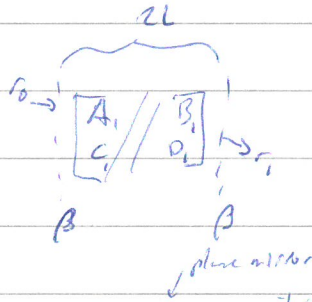 2L
r₀ → A₁ B₁
C₁ D₁ → r₁
β β
plane mirror